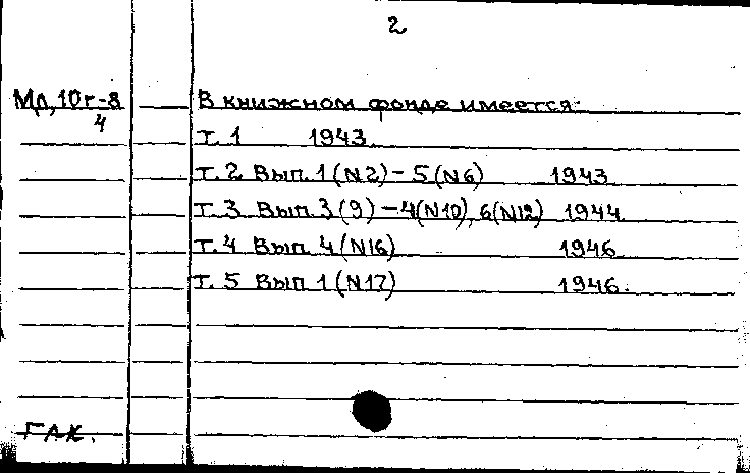 2
Мд,10г-8
4
В книжном фонде имеется:
т. 1 1943.
т. 2 Вып. 1 (N2) - 5 (N6) 1943
т. 3 Вып. 3 (9) - 4(N10), 6(N12) 1944
т. 4 Вып 4 (N16) 1946
т. 5 Вып 1 (N17) 1946.
ГАК.